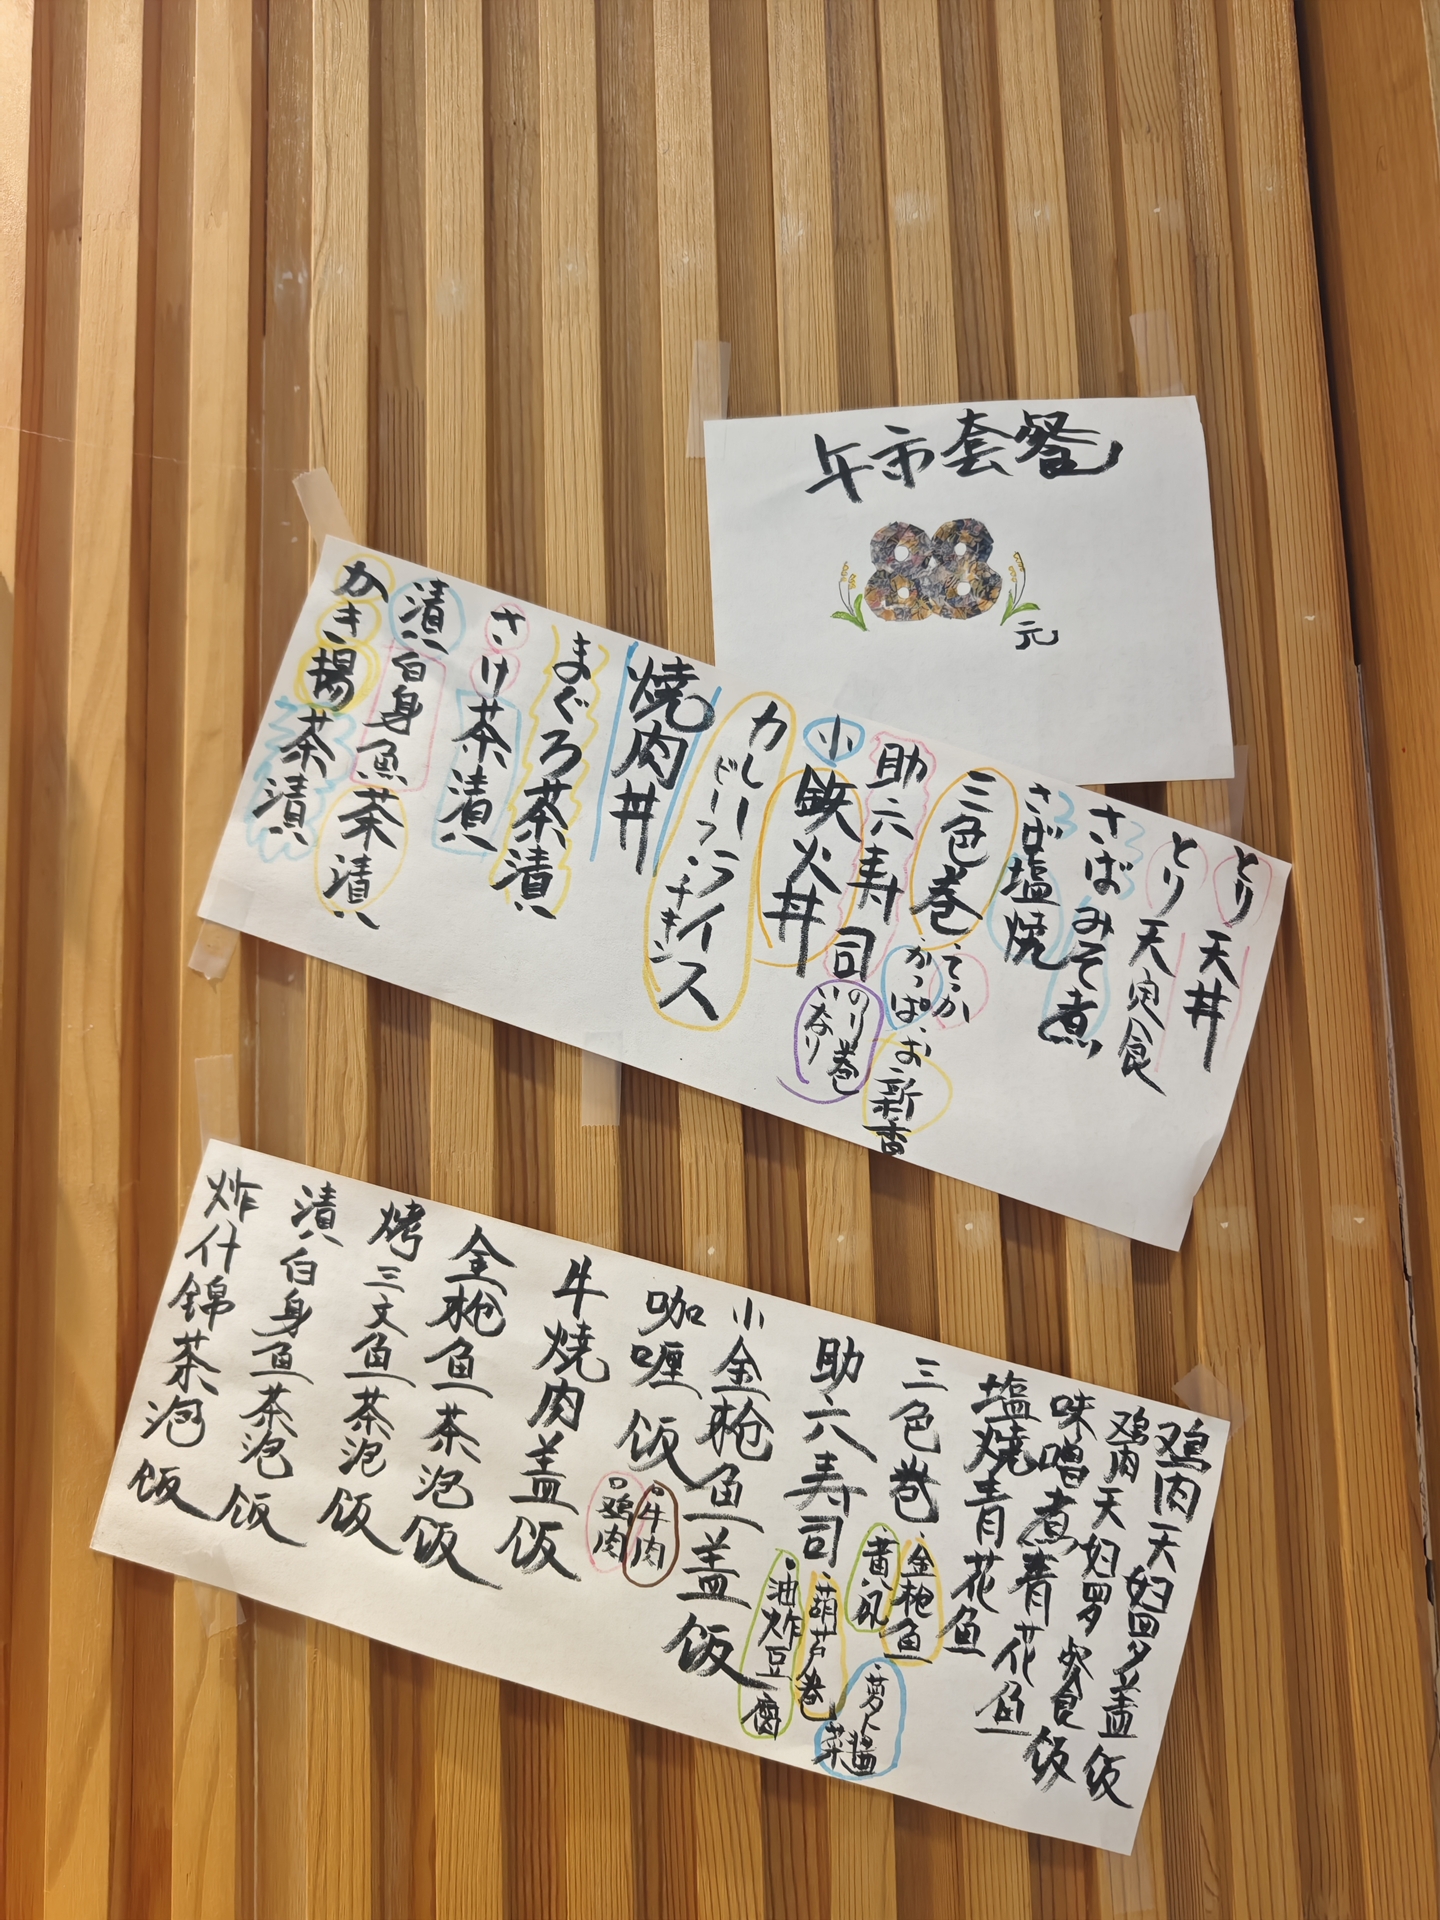 午市套餐
88
元
とり天丼
とり天定食
さばみそ煮
さば塩焼
三色巻
・てっか
・かっぱ・お新香
助六寿司
のり巻
いなり
小鉄火丼
カレーライス
ビーフ・チキン
焼肉丼
まぐろ茶漬け
さけ茶漬け
漬け白身魚茶漬け
かき揚茶漬け
鸡肉天妇罗盖饭
鸡肉天妇罗定食饭
味噌煮青花鱼
塩焼青花鱼
三色卷
・金枪鱼
・黄瓜
・萝卜酱菜
助六寿司
・葫芦卷
・油炸豆腐
小金枪鱼盖饭
咖喱饭
・牛肉
・鸡肉
牛焼肉盖饭
金枪鱼茶泡饭
烤三文鱼茶泡饭
漬け白身鱼茶泡饭
炸什錦茶泡饭